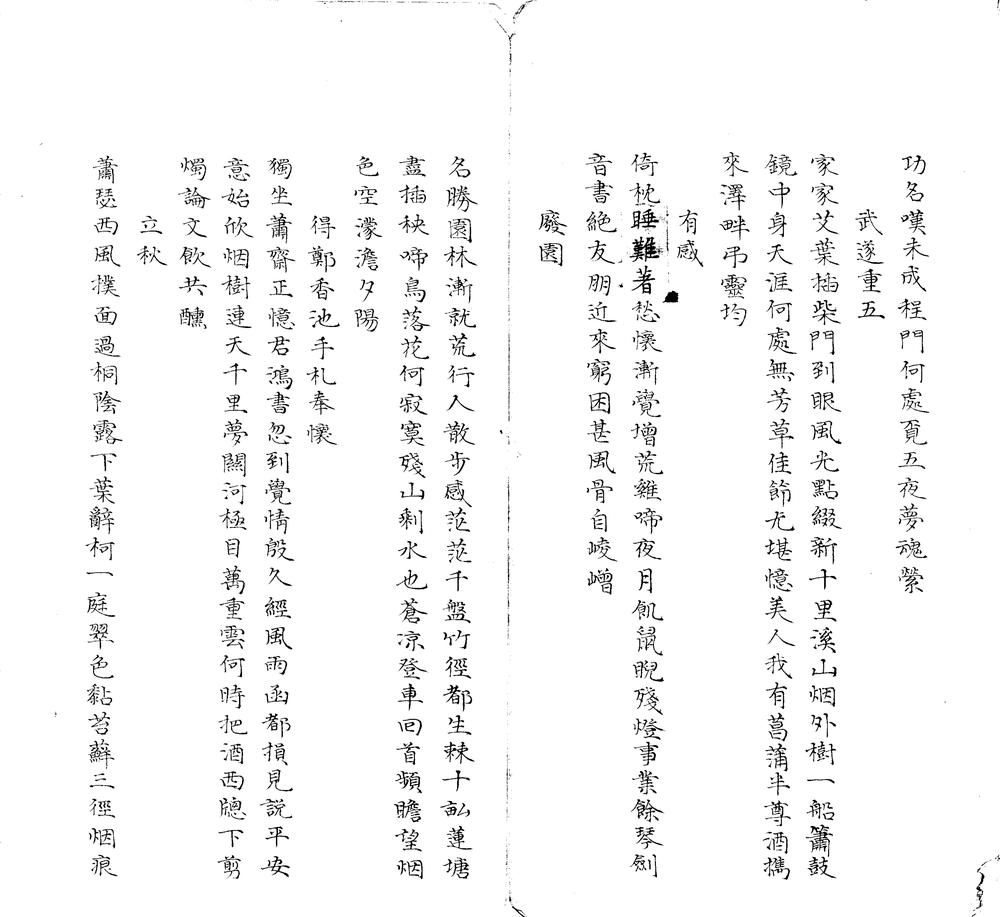 功名嘆未成程門何處覓五夜夢魂縈
武遂重五
家家艾葉插柴門到眼風光點綴新十里溪山烟外樹一船簫鼓
鏡中身天涯何處無芳草佳節尤堪憶美人我有菖蒲半尊酒攜
來澤畔弔靈均
有感
倚枕睡難著愁懷漸覺增荒雞啼夜月飢鼠睨殘燈事業餘琴劍
音書絕友朋近來窮困甚風骨自崚嶒
廢園
名勝園林漸就荒行人散步感茫茫千盤竹徑都生棘十畝蓮塘
盡插秧啼鳥落花何寂寞殘山剩水也蒼涼登車回首頻瞻望烟
色空濛澹夕陽
得鄭香池手札奉懷
獨坐蕭齋正憶君鴻書忽到覺情殷久經風雨函都損見說平安
意始欣烟樹連天千里夢關河極目萬重雲何時把酒西牕下剪
燭論文飲共醺
立秋
蕭瑟西風撲面過桐陰露下葉辭柯一庭翠色黏苔蘚三徑烟痕